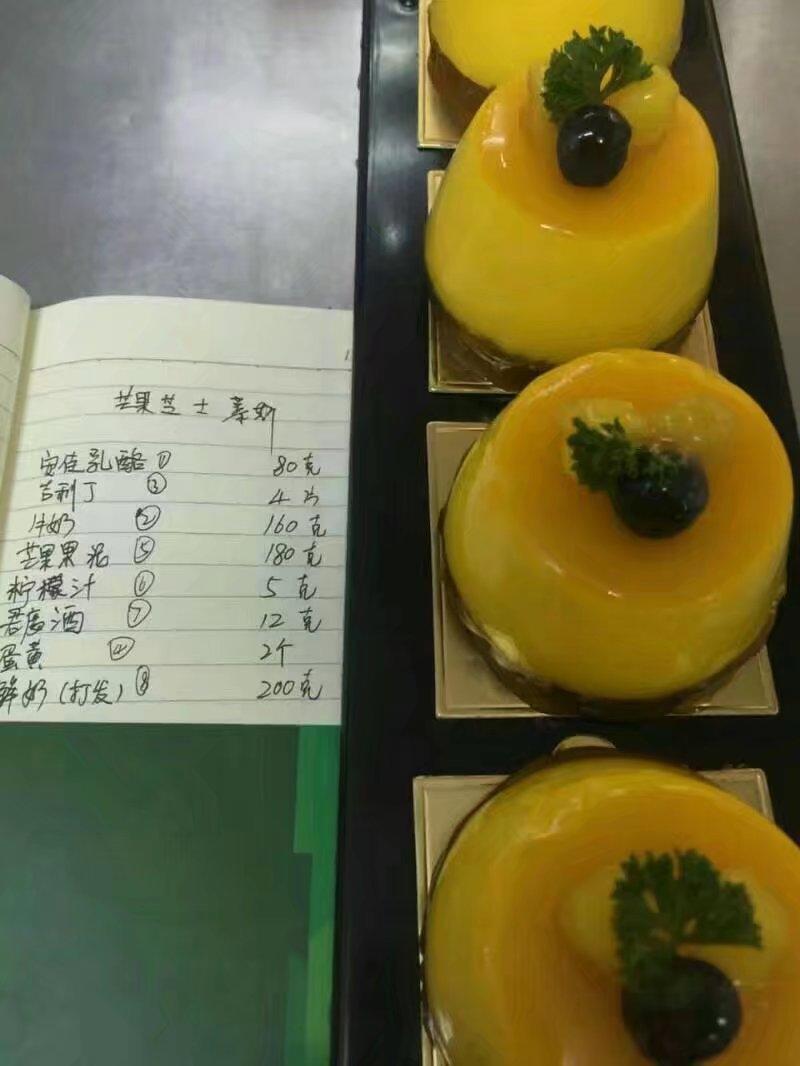 芒果芝士慕斯
安佳乳酪 ① 80克
吉利丁 ③ 4片
牛奶 ② 160克
芒果果泥 ⑤ 180克
柠檬汁 ⑥ 5克
君度酒 ⑦ 12克
蛋黄 ④ 2个
鲜奶(打发) ⑧ 200克